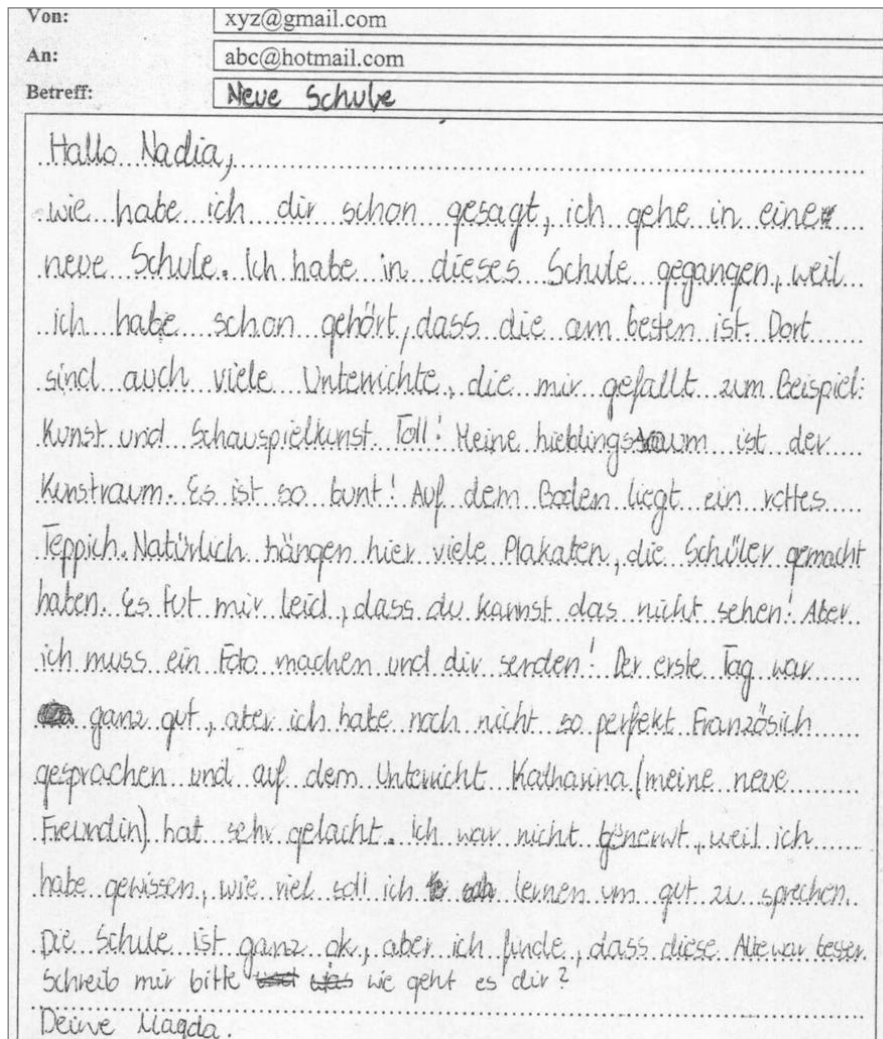 Von: xyz@gmail.com
An: abc@hotmail.com
Betreff: Neue Schule
Hallo Nadia,
wie habe ich dir schon gesagt, ich gehe in eine
neue Schule. Ich habe in dieses Schule gegangen, weil
ich habe schon gehört, dass die am besten ist. Dort
sind auch viele Unterrichte, die mir gefallt zum Beispiel:
Kunst und Schauspielkunst. Toll! Meine Lieblingsraum ist der
Kunstraum. Es ist so bunt! Auf dem Boden liegt ein rottes
Teppich. Natürlich hängen hier viele Plakaten, die Schüler gemacht
haben. Es tut mir leid, dass du kannst das nicht sehen! Aber
ich muss ein Foto machen und dir senden! Der erste Tag war
ganz gut, aber ich habe noch nicht so perfekt Französich
gesprochen und auf dem Unterricht Katharina (meine neue
Freundin) hat sehr gelacht. Ich war nicht genervt, weil ich
habe gewissen, wie viel soll ich lernen um gut zu sprechen.
Die Schule ist ganz ok, aber ich finde, dass diese Alte war besser.
Schreib mir bitte wie geht es dir?
Deine Magda.